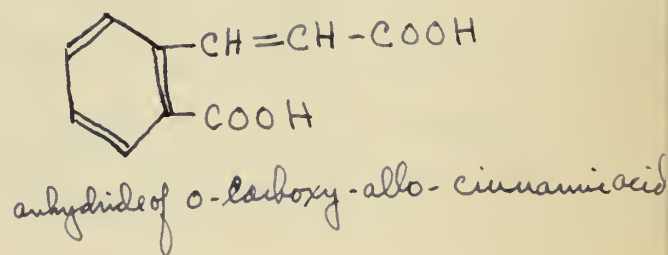 CH=CH-COOH
COOH
anhydride of o-Carboxy-allo-cinnamic acid